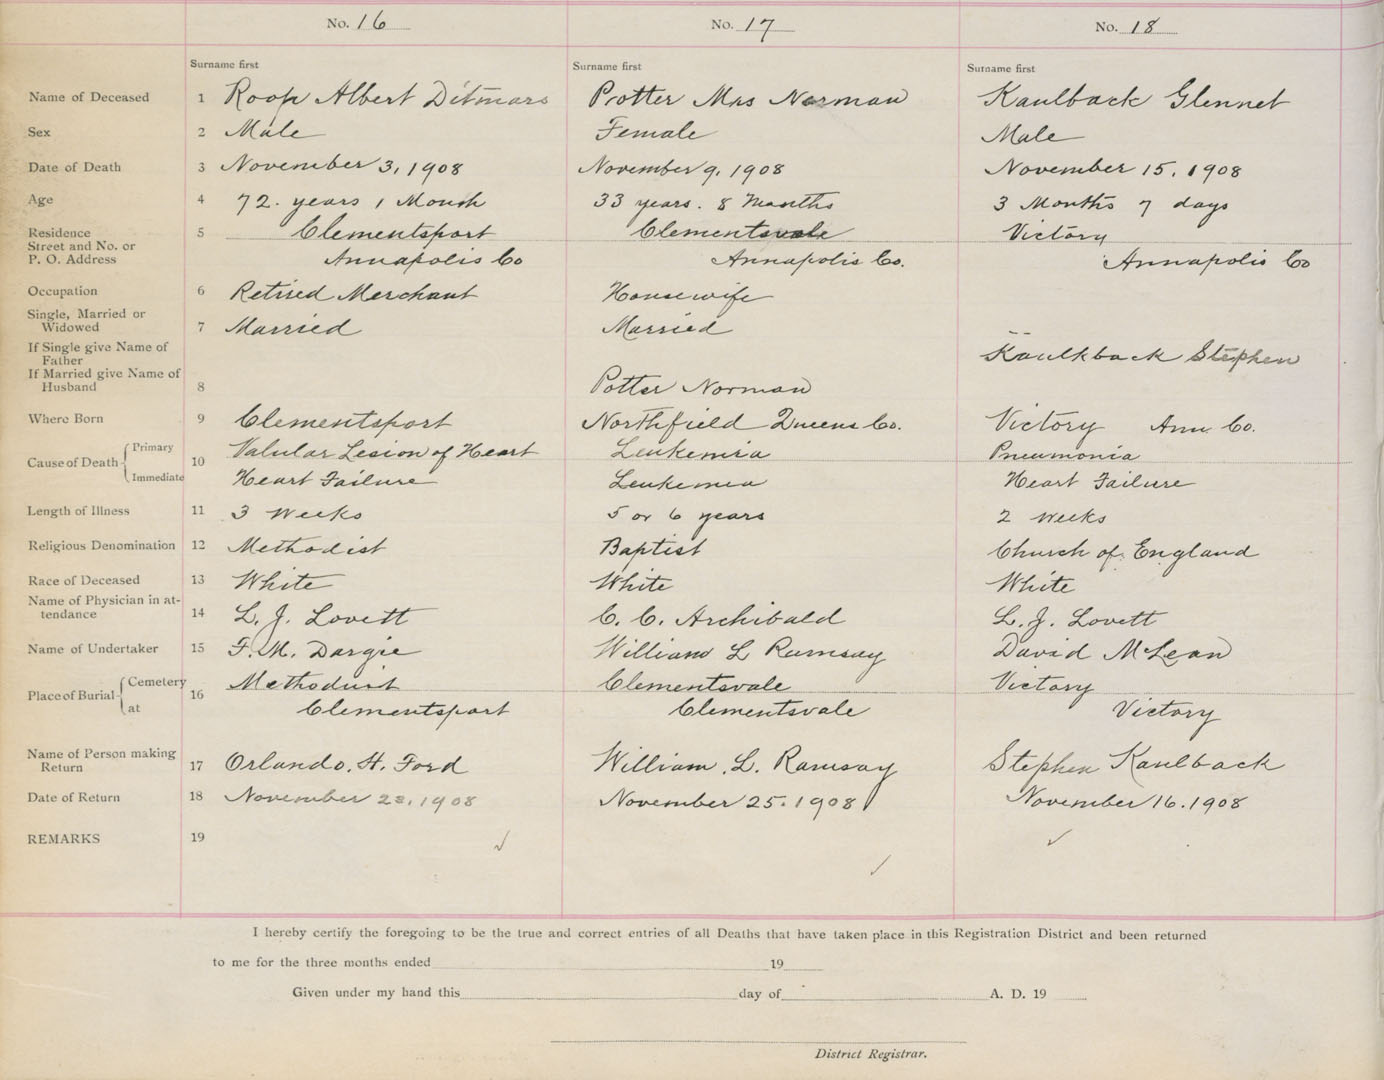 No. 16 No. 17 No. 18
Surname first Surname first Surname first
Name of Deceased 1 Roop Albert Ditmars Potter Mrs Norman Kaulback Glennet
Sex 2 Male Female Male
Date of Death 3 November 3, 1908 November 9, 1908 November 15, 1908
Age 4 72 years 1 Month 33 years. 8 Months 3 Months 7 days
Residence 5 Clementsport Clementsvale Victory
Street and No. or
P. O. Address Annapolis Co Annapolis Co. Annapolis Co
Occupation 6 Retired Merchant Housewife
Single, Married or
Widowed 7 Married Married
If Single give Name of
Father Kaulkback Stephen
If Married give Name of
Husband 8 Potter Norman
Where Born 9 Clementsport Northfield Queens Co. Victory Ann. Co.
Cause of Death 10 Primary Valular Lesion of Heart Leukemia Pneumonia
Immediate Heart Failure Leukemia Heart Failure
Length of Illness 11 3 Weeks 5 or 6 years 2 weeks
Religious Denomination 12 Methodist Baptist Church of England
Race of Deceased 13 White White White
Name of Physician in at-
tendance 14 L. J. Lovett C. C. Archibald L. J. Lovett
Name of Undertaker 15 F. M. Dargie William L Ramsay David McLean
Place of Burial 16 Cemetery Methodist Clementsvale Victory
at Clementsport Clementsvale Victory
Name of Person making
Return 17 Orlando. H. Ford William. L. Ramsay Stephen Kaulback
Date of Return 18 November 1908 November 25. 1908 November 16. 1908
REMARKS 19
I hereby certify the foregoing to be the true and correct entries of all Deaths that have taken place in this Registration District and been returned
to me for the three months ended 19
Given under my hand this day of A. D. 19
District Registrar.